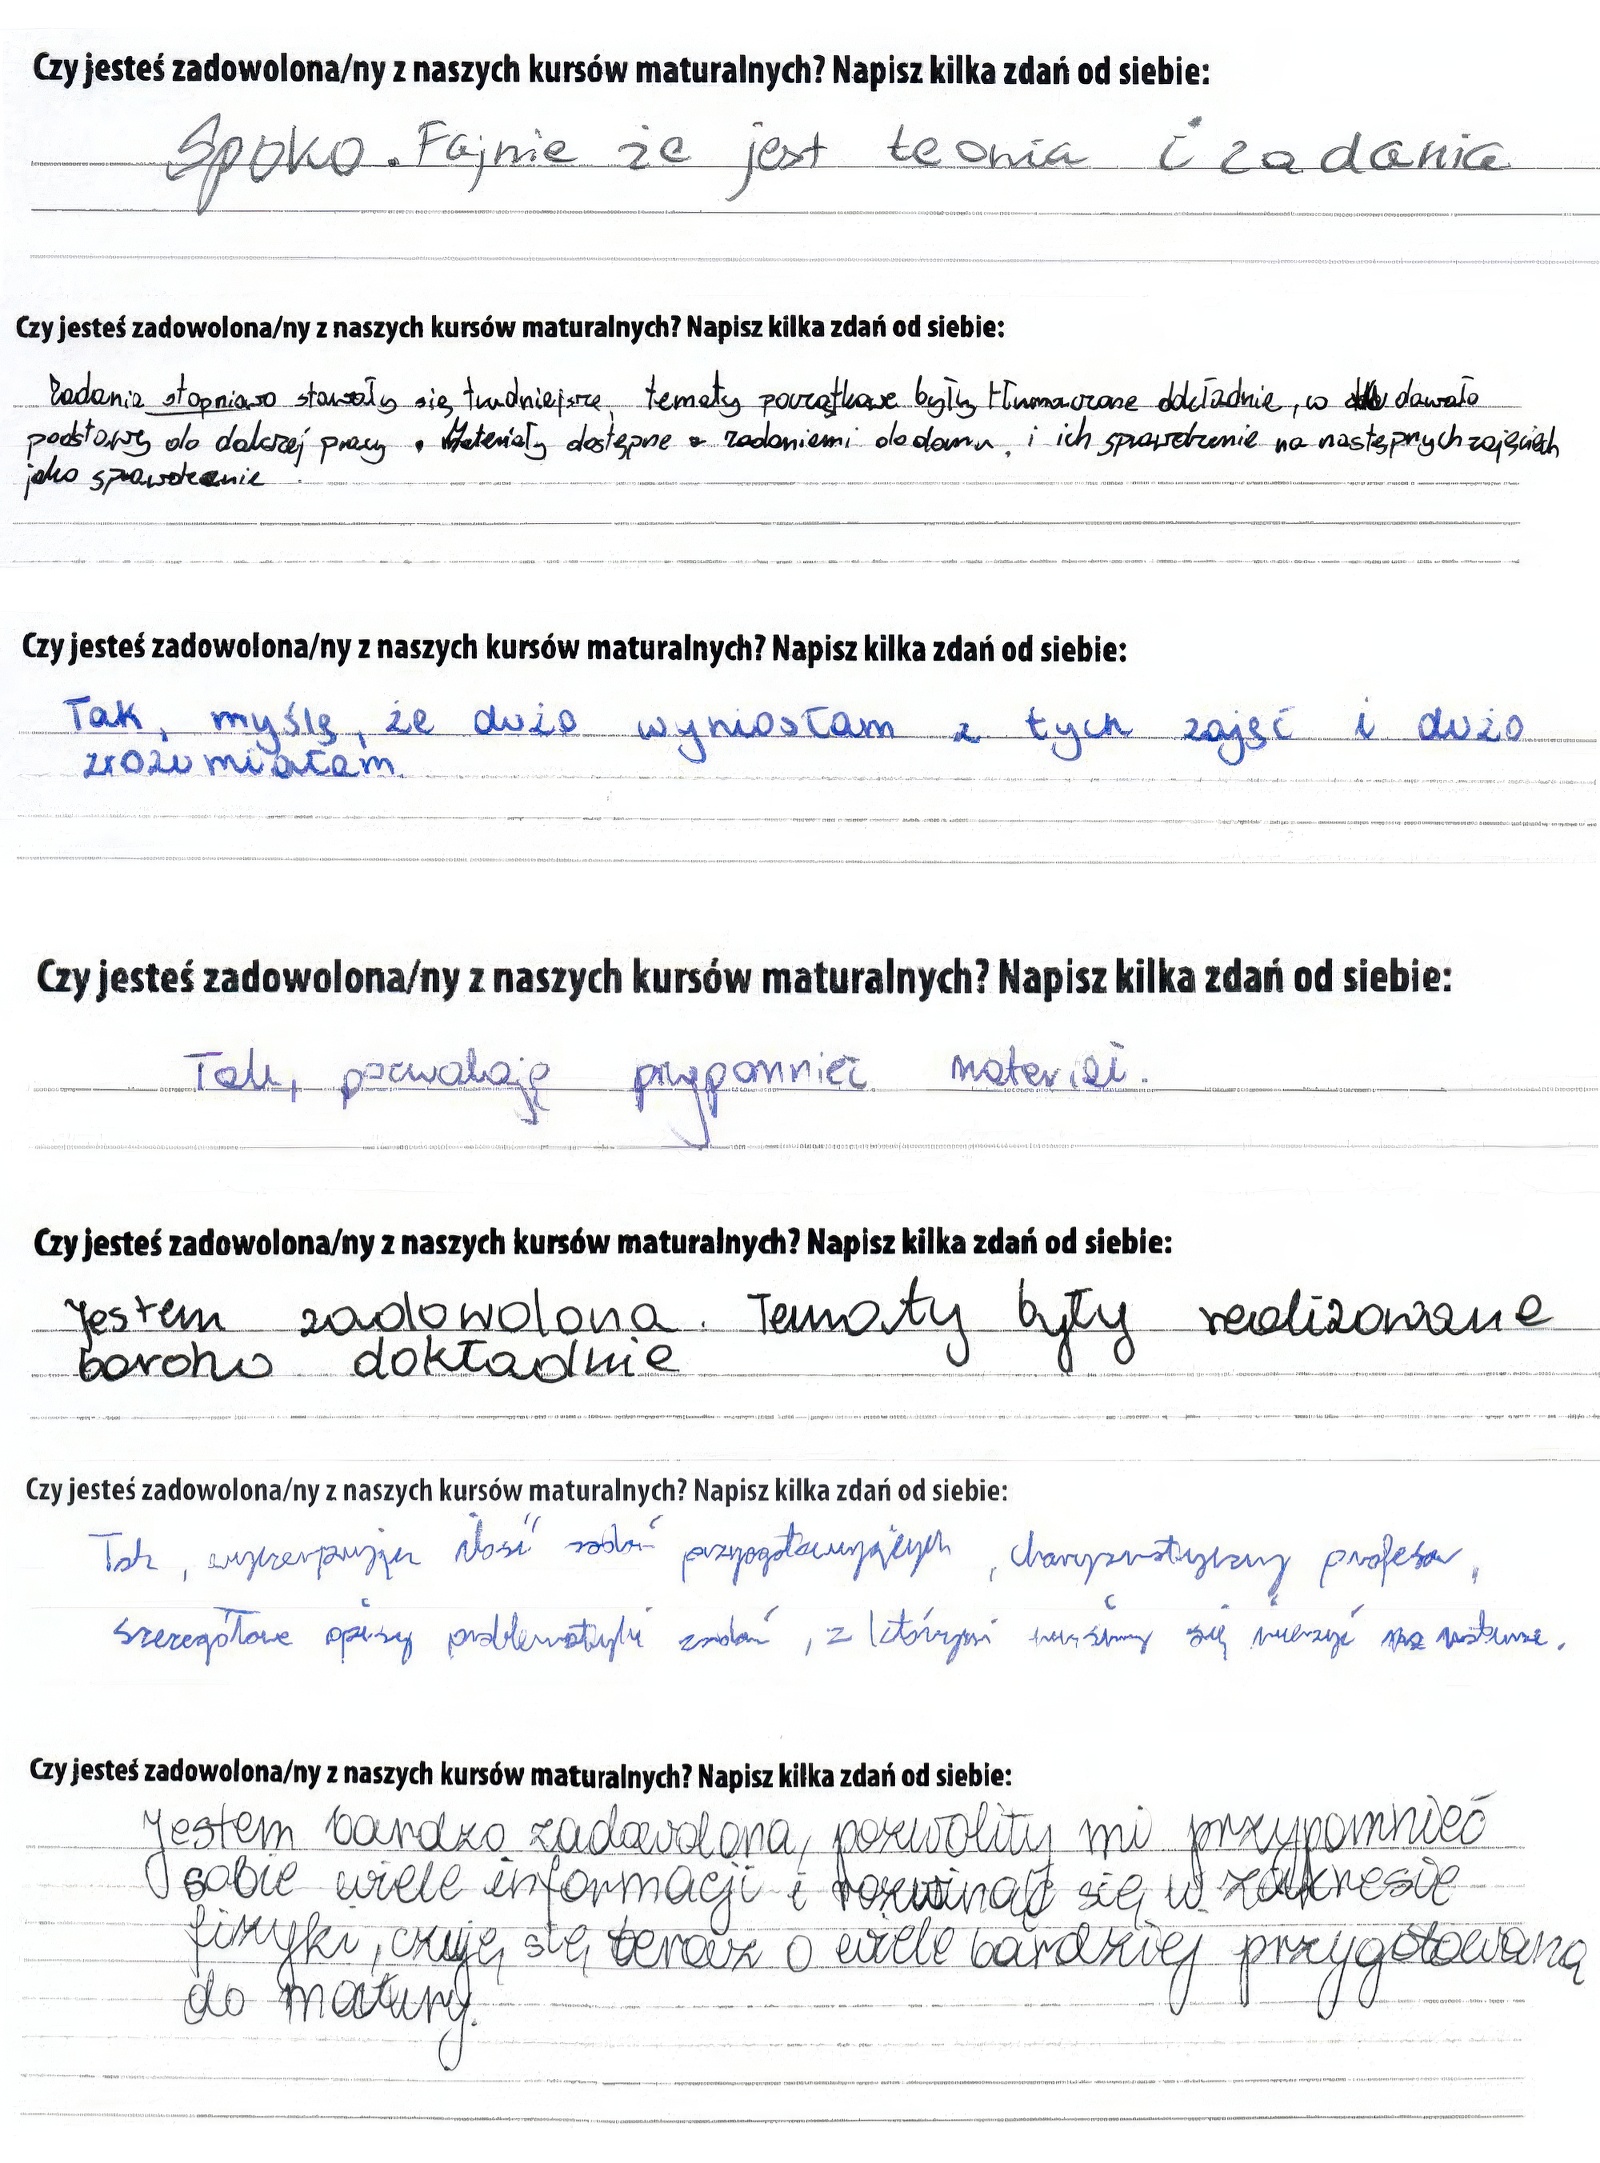 Czy jesteś zadowolona/ny z naszych kursów maturalnych? Napisz kilka zdań od siebie:
Spoko. Fajnie że jest teoria i zadania
Czy jesteś zadowolona/ny z naszych kursów maturalnych? Napisz kilka zdań od siebie:
Zadania stopniowo stawały się trudniejsze, tematy początkowe były tłumaczone dokładnie, co dawało
podstawę do dalszej pracy. Materiały dostępne z zadaniami do domu, i ich sprawdzenie na następnych zajęciach
jako sprawdzenie
Czy jesteś zadowolona/ny z naszych kursów maturalnych? Napisz kilka zdań od siebie:
Tak, myślę, że dużo wyniosłam z tych zajęć i dużo
zrozumiałam.
Czy jesteś zadowolona/ny z naszych kursów maturalnych? Napisz kilka zdań od siebie:
Tak, pozwalają przypomnieć materiał.
Czy jesteś zadowolona/ny z naszych kursów maturalnych? Napisz kilka zdań od siebie:
Jestem zadowolona. Tematy były realizowane
bardzo dokładnie
Czy jesteś zadowolona/ny z naszych kursów maturalnych? Napisz kilka zdań od siebie:
Tak, wyczerpująca ilość zadań przygotowujących, charyzmatyczny profesor,
szczegółowe opisy problematyki zadań, z którymi musimy się mierzyć na maturze.
Czy jesteś zadowolona/ny z naszych kursów maturalnych? Napisz kilka zdań od siebie:
Jestem bardzo zadowolona, pozwoliły mi przypomnieć
sobie wiele informacji i rozwinąć się w zakresie
fizyki, czuję się teraz o wiele bardziej przygotowaną
do matury.